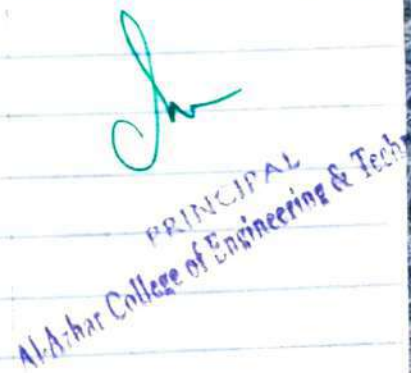 PRINCIPAL
Al-Azhar College of Engineering & Techn